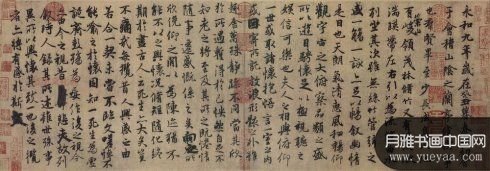 永和九年歲在癸丑暮春之初會
于會稽山陰之蘭亭脩稧事
也羣賢畢至少長咸集此地
有崇山峻領茂林脩竹又有清流激
湍暎帶左右引以為流觴曲水
列坐其次雖無絲竹管弦之
盛一觴一詠亦足以暢敘幽情
是日也天朗氣清惠風和暢仰
觀宇宙之大俯察品類之盛
所以遊目騁懷足以極視聽之
娛信可樂也夫人之相與俯仰
一世或取諸懷抱悟言一室之內
或因寄所託放浪形骸之外雖
趣舍萬殊靜躁不同當其欣
於所遇蹔得於己怏然自足不
知老之將至及其所之既惓情
隨事遷感慨係之矣向之所
欣俛仰之閒以為陳迹猶不
能不以之興懷況脩短隨化終
期於盡古人云死生亦大矣豈
不痛哉每攬昔人興感之由
若合一契未嘗不臨文嗟悼不
能喻之於懷固知一死生為虛
誕齊彭殤為妄作後之視今
亦由今之視昔悲夫故列
敘時人錄其所述雖世殊事
異所以興懷其致一也後之攬
者亦將有感於斯文
月雅书画中国网
www.yueyaa.com